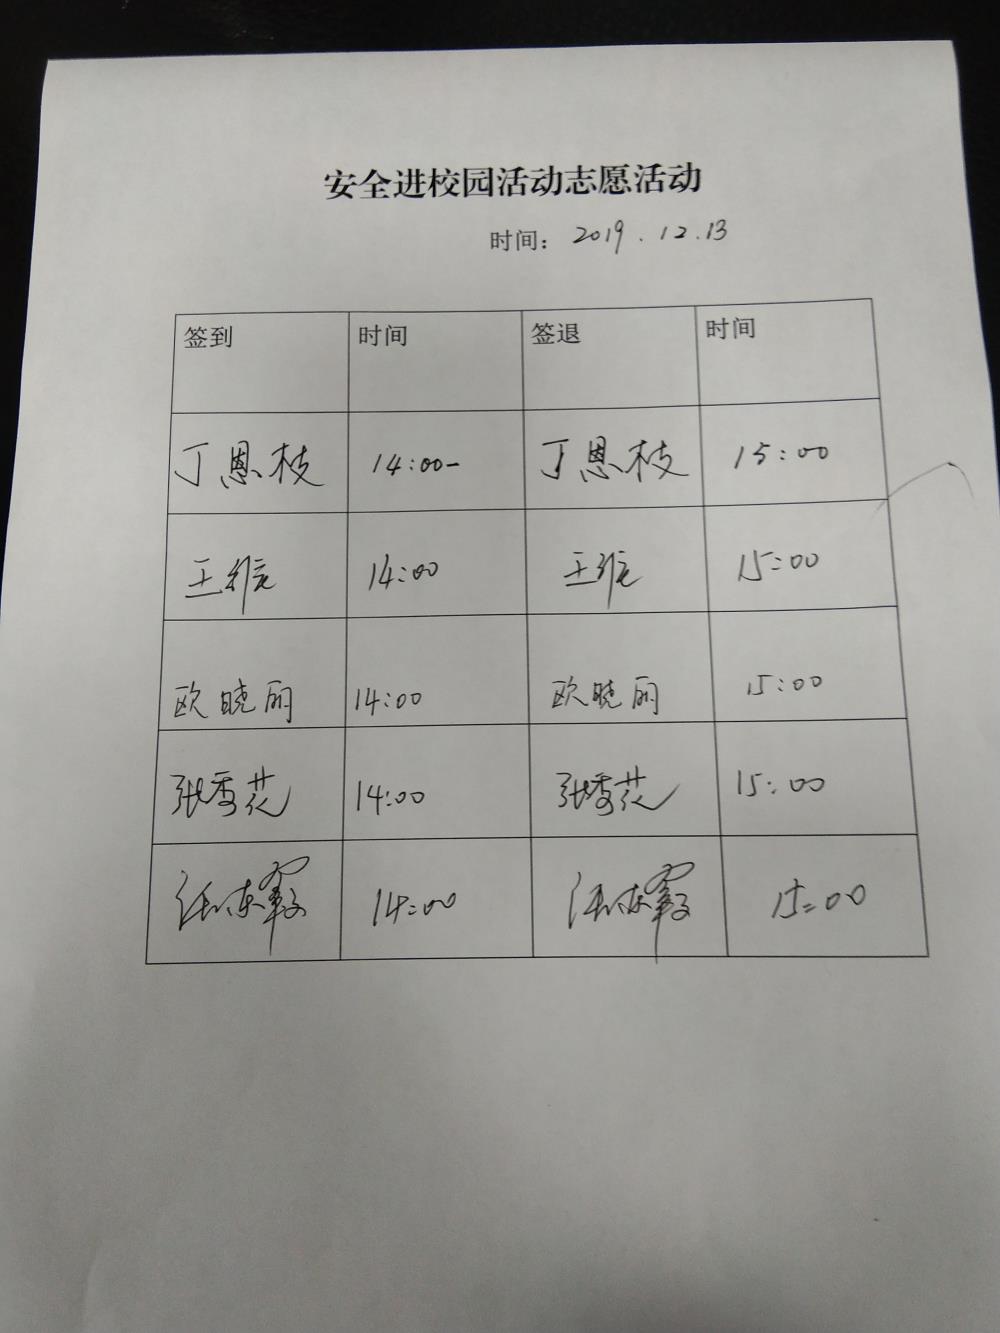 安全进校园活动志愿活动
时间： 2019.12.13
签到 时间 签退 时间
丁恩枝 14:00- 丁恩枝 15:00
王 14:00 王 15:00
欧晓丽 14:00 欧晓丽 15:00
张秀花 14:00 张秀花 15:00
14:00 15:00